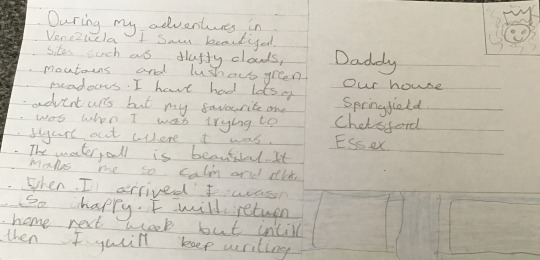 During my adventures in
Venezuela I saw beautiful
sites such as fluffy clouds,
moutains and lushous green
meadows. I have had lots of
adventures but my favourite one
was when I was trying to
figure out where I was.
The waterfall is beautiful. It
makes me so calm and
when I arrived I was
so happy. I will return
home next week but intill
then I will keep writing
Daddy
Our house
Springfield
Chelsford
Essex